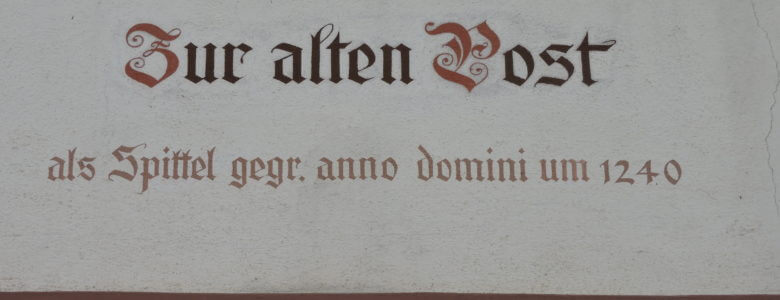 Zur alten Post
als Spittel gegr. anno domini um 1240